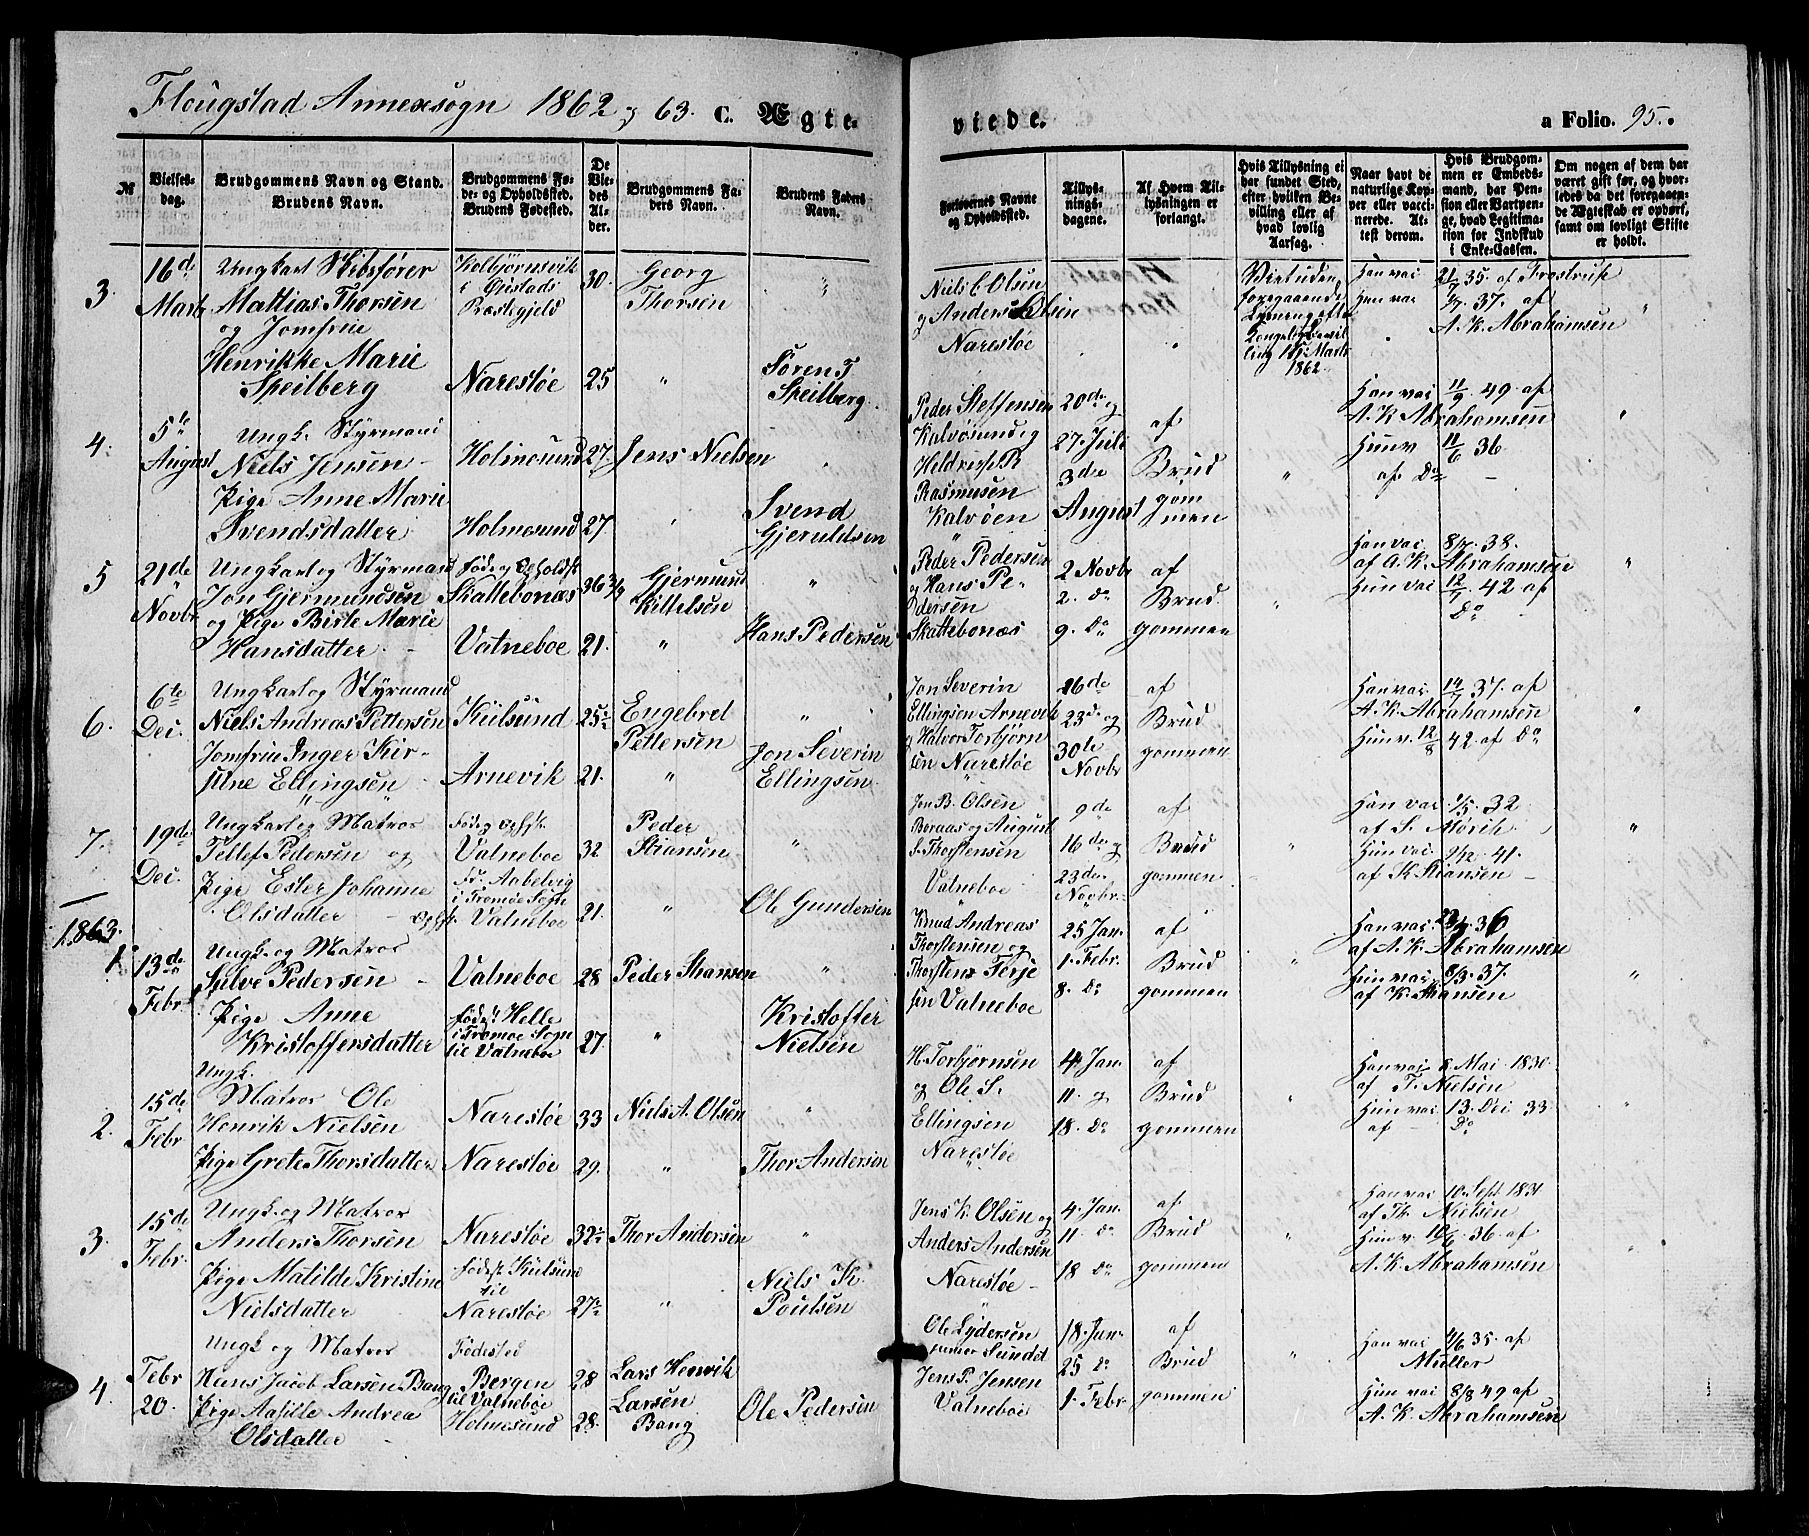 Flougstad Annexsogn 1862 & 63. C. Ægte-
viede.
a Folio. 95.
№
Vielses-
dag.
Brudgommens Navn og Stand.
Brudens Navn.
Brudgommens Fø-
de- og Opholdssted.
Brudens Fødested.
De
Vie-
des
Al-
der.
Brudgommens Fa-
ders Navn.
Brudens Faders
Navn.
Forlovernes Navne
og Opholdssted.
Tillys-
nings-
dagene.
Af Hvem Til-
lysningen er
forlangt.
Hvis Tillysning ei
har fundet Sted,
efter hvilken Be-
villing eller af
hvad lovlig
Aarsag.
Naar havt de
naturlige Kop-
per eller vacci-
nerede. At-
test derom.
Hvis Brudgom-
men er Embeds-
mand, har Pen-
sion eller Vartpen-
ge, hvad Legitima-
tion for Indskud
i Enke-Cassen.
Om nogen af dem har
været gift før, og hvor-
ledes da det foregaaen-
de Ægteskab er ophørt,
samt om lovligt Skifte
er holdt.
3.
16de
Marts
Ungkarl Skibsfører
Mattias Thorsen
og Jomfrue
Henrikke Marie
Speilberg
Kolbjørnsvik
i Øiestads
Præstegjeld
Narestøe
30
25
Georg
Thorsen
"
Søren T
Speilberg
Niels C. Olsen
og Anders Olsen
Narestøe
Viet uden
foregaaende
Lysning efter
Kongelig Bevil
ling 15 Marts
1862
Han vac 21/7 35. af Frostrup
Hun vac 7/7 37. af
A. K. Abrahamsen
4.
5te
August
Ungk. Styrmand
Niels Jensen
Pige Anne Marie
Svendsdatter
Holmesund
Holmesund
27.
27.
Jens Nielsen
Svend
Gjeruldsen
Peder Steffensen
Kalvøsund og
Rasmusen
Kalvøen
20de og
27. Juli
3die
August
af
Brud
gom
men
Han vac 11/9 49 af
A. K. Abrahamsen
Hun v. 11/6 36
af Do
5
21de
Novbr
Ungkarl og Styrmand
Jon Gjermundsen
og Pige Birte Marie
Hansdatter
Føde og Opholdst
Skattebonæs
Valneboe
36 3/4
21.
Gjermund
Kittelsen
"
Hans Pedersen
Peder Pedersen
og Hans Pe-
dersen
Skattebonæs
2 Novbr
2. Do
9. Do
af
Brud
gommen
Han vac 8/7. 38.
af A. K. Abrahamsen
Hun vac 12/7 42 af
Do
6.
6te
Dec.
Ungkarl og Styrmand
Niels Andreas Pettersen
Jomfrue Inger Kir-
stine Ellingsen
Kiilsund
Arnevik
25
21.
Engebret
Pettersen
"
Jon Severin
Ellingsen
Jon Severin
Ellingsen Arnevik
og Halvor Torbjørn
sen Narestøe
16de
23de og
30te
Novbr
af
Brud
gommen
Han vac 14/7 37. af
A. K. Abrahamsen
Hun v. 12/8 42. af Do
7.
19de
Dec.
Ungkarl og Matros
Tellef Pedersen og
Pige Ester Johanne
Olsdatter
Føde og Ophst.
Valneboe
Fd. Aabelvig
i Tromøe Sogn
Ophst. Valneboe
32
21.
Peder
Stiansen
"
Ole Gundersen
Jon B. Olsen
Boraas og August
S. Thorstensen
Valneboe
9de
16de og
23de
Novbr.
af
Brud
gommen
Han vac 1/5. 32
af S. Mørch
Hun vac 9/12 41.
af K. Stiansen
1863.
1.
13de
Febr
Ungk. og Matros
Sylve Pedersen
Pige Anne
Kristoffersdatter
Valneboe
født Helle
i Tromøe Sogn
til Valneboe
28
27.
Peder Stiansen
"
Kristoffer
Nielsen
Knud Andreas
Thorstensen og
Thorstens Terje
sen Valneboe
25 Jan.
1. Febr.
8. Do
af
Brud
gommen
Han vac. 36
af A. K. Abrahamsen
Hun vac. 8/3. 37.
af K. Stiansen
2.
15de
Febr
Ungk.
Matros Ole
Henrik Nielsen
Pige Grete Thorsdatter
Narestøe
Narestøe
33
29.
Niels A. Olsen
"
Thor Andersen
H. Torbjørnsen
og Ole S.
Ellingsen
Narestøe
4. Jan.
11. og
18. Do
af
Brud
gommen
Han vac 8 Mai 1830
af T. Nielsen
Hun vac 13. Dec 33
af Do
3.
15de
Febr.
Ungk. og Matros
Anders Thorsen
Pige Matilde Kristine
Nielsdatter
Narestøe
Fødest. Kiilsund
til
Narestøe
32
27
Thor Andersen
"
Niels K.
Poulsen
Jens K. Olsen og
Anders Andersen
Narestøe
4. Jan.
11. Do
18 Do
af
Brud
gommen
Han vac 10. Sept 1831
af Th. Nielsen
Hun v. 10/6 36 af
A. K. Abrahamsen
4.
Febr
20.
Ungk og Matros
Hans Jacob Larsen Bang
Pige Aasille Andrea
Olsdatter
Fødested
Bergen
til Valneboe
Holmesund
28
28.
Lars Henrik
Larsen
Bang
Ole Pedersen
Ole Lydersen
Sundet
Jens P. Jensen
Valneboe
18. Jan.
25 Do
1. Febr
af
Brud
gommen
Han vac 4/6 35. af
Müller
Hun vac 8/8 49 af
A. K. Abrahamsen